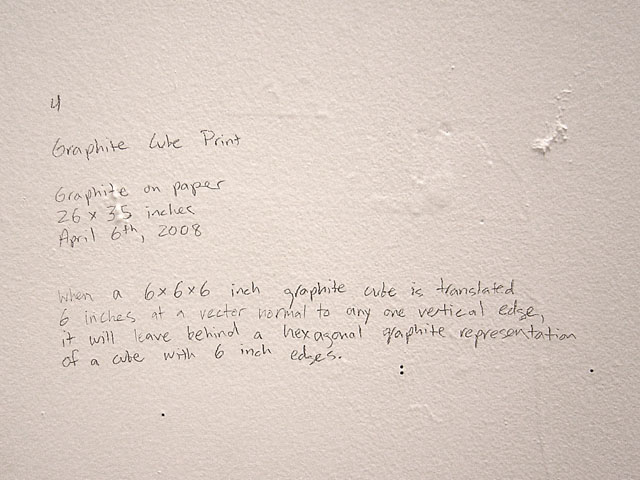 4
Graphite Cube Print
Graphite on paper
26 x 35 inches
April 6th, 2008
When a 6x6x6 inch graphite cube is translated
6 inches at a vector normal to any one vertical edge,
it will leave behind a hexagonal graphite representation
of a cube with 6 inch edges.